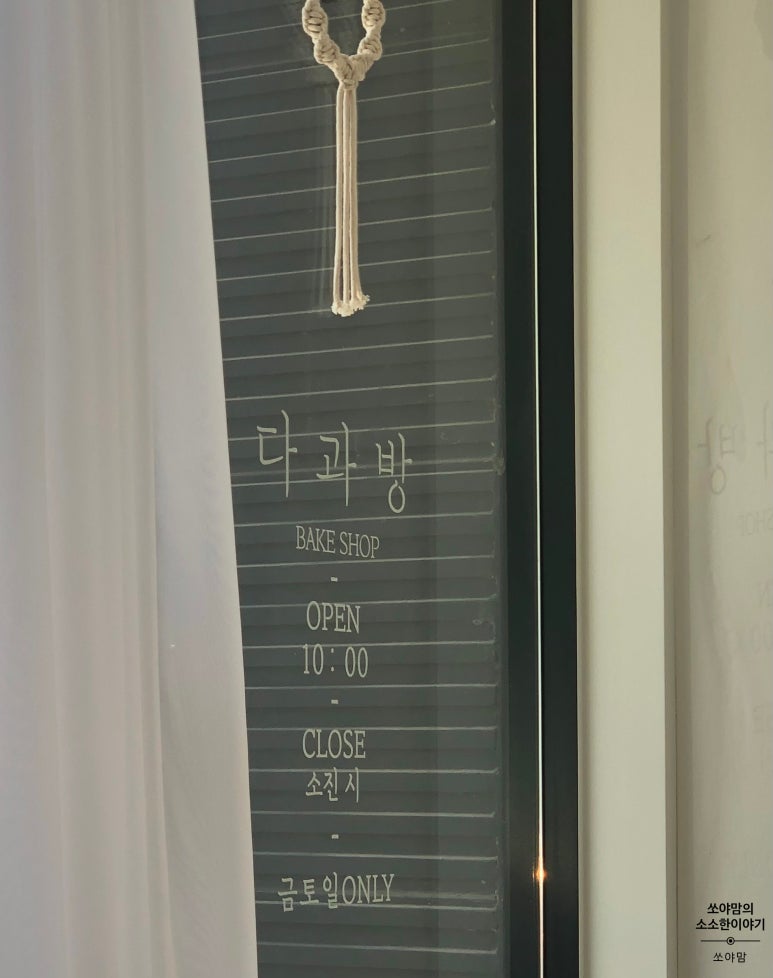 다과방
BAKE SHOP
-
OPEN
10:00
-
CLOSE
소진 시
-
금토일ONLY
쏘야맘의
소소한이야기
쏘야맘